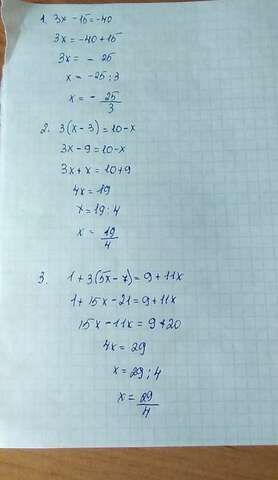 1. 3x - 15 = -40
3x = -40 + 15
3x = - 25
x = -25 : 3
x = - 25/3
2. 3(x - 3) = 10 - x
3x - 9 = 10 - x
3x + x = 10 + 9
4x = 19
x = 19 : 4
x = 19/4
3. 1 + 3(5x - 7) = 9 + 11x
1 + 15x - 21 = 9 + 11x
15x - 11x = 9 + 20
4x = 29
x = 29 : 4
x = 29/4